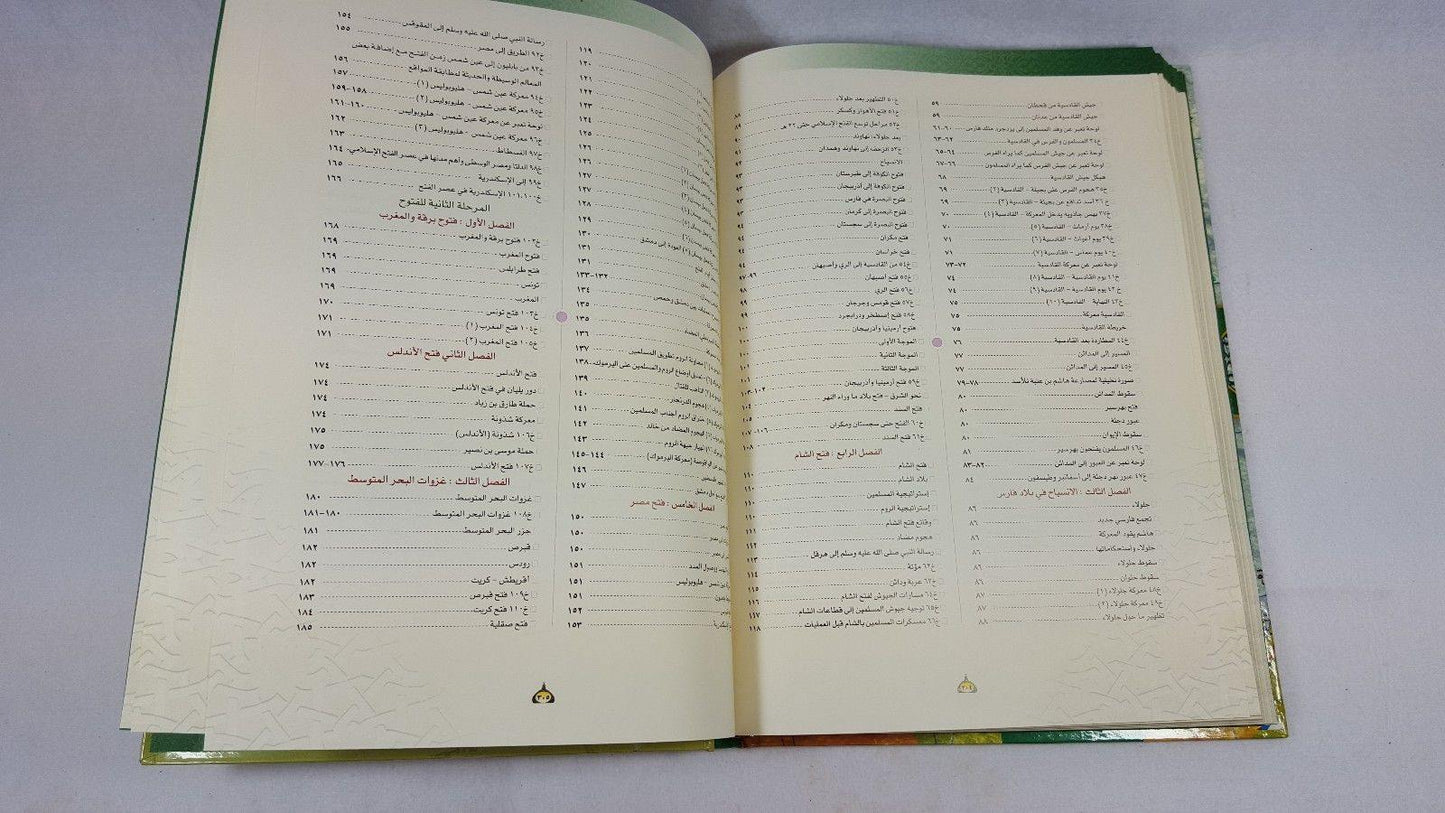 جيش القادسية من قحطان ٥٩
جيش القادسية من عدنان ٥٩
لوحة تعبر عن وفد المسلمين إلى يزدجرد ملك فارس ٦٠-٦١
خ٣٤ المسلمون والفرس في القادسية ٦٢-٦٣
لوحة تعبر عن جيش المسلمين كما يراه الفرس ٦٤-٦٥
لوحة تعبر عن جيش الفرس كما يراه المسلمون ٦٦-٦٧
هيكل جيش القادسية ٦٨
خ٣٥ هجوم الفرس على بجيلة - القادسية (٢) ٦٩
خ٣٦ أسد تدافع عن بجيلة - القادسية (٣) ٦٩
خ٣٧ بهمن جاذويه يدخل المعركة - القادسية (٤) ٧٠
خ٣٨ يوم أرماث - القادسية (٥) ٧٠
خ٣٩ يوم أغواث - القادسية (٦) ٧١
خ٤٠ يوم عماس - القادسية (٧) ٧١
لوحة تعبر عن معركة القادسية ٧٢-٧٣
خ٤١ يوم القادسية - القادسية (٨) ٧٤
خ٤٢ يوم القادسية - القادسية (٩) ٧٤
خ٤٣ النهاية - القادسية (١٠) ٧٥
القادسية معركة ٧٥
خريطة القادسية ٧٥
خ٤٤ المطاردة بعد القادسية ٧٦
المسير إلى المدائن ٧٧
خ٤٥ المسير إلى المدائن ٧٧
صورة تخيلية لمصارعة هاشم بن عتبة للأسد ٧٨-٧٩
سقوط المدائن ٨٠
فتح بهرسير ٨٠
عبور دجلة ٨٠
سقوط الإيوان ٨٠
خ٤٦ المسلمون يفتحون بهرسير ٨١
لوحة تعبر عن العبور إلى المدائن ٨٢-٨٣
خ٤٧ عبور نهر دجلة إلى أسفانبر وطيسفون ٨٤
الفصل الثالث : الانسياح في بلاد فارس
جلولاء ٨٦
تجمع فارسي جديد ٨٦
هاشم يقود المعركة ٨٦
جلولاء واستحكاماتها ٨٦
سقوط جلولاء ٨٦
سقوط حلوان ٨٦
خ٤٨ معركة جلولاء (١) ٨٧
خ٤٩ معركة جلولاء (٢) ٨٧
تطهير ما حول جلولاء ٨٨
خ٥٠ التطهير بعد جلولاء ٨٨
خ٥١ فتح الأهواز وكسكر ٨٩
خ٥٢ مراحل توسع الفتح الإسلامي حتى ٢٢ هـ
بعد جلولاء: نهاوند ٩١
خ٥٣ الزحف إلى نهاوند وهمدان ٩٢
الانسياح ٩٣
فتوح الكوفة إلى طبرستان ٩٣
فتوح الكوفة إلى أذربيجان ٩٣
فتوح البصرة في فارس ٩٣
فتوح البصرة إلى كرمان ٩٤
فتوح البصرة إلى سجستان ٩٤
فتح مكران ٩٤
فتح خراسان ٩٤
خ٥٤ من القادسية إلى الري وأصبهان
خ٥٥ فتح أصبهان ٩٨
خ٥٦ فتح الري ٩٨
خ٥٧ فتح قومس وجرجان ٩٩
خ٥٨ فتح إصطخر ودرابجرد
فتوح أرمينيا وأذربيجان ١٠٠
الموجة الأولى ١٠٠
الموجة الثانية ١٠٠
الموجة الثالثة ١٠١
خ٥٩ فتح أرمينيا وأذربيجان ١٠٢-١٠٣
نحو الشرق - فتح بلاد ما وراء النهر ١٠٤
فتح السند ١٠٥
خ٦٠ الفتح حتى سجستان ومكران ١٠٦-١٠٧
خ٦١ فتح السند ١٠٨
الفصل الرابع : فتح الشام
فتح الشام ١١٠
بلاد الشام ١١٠
إستراتيجية المسلمين ١١٠
إستراتيجية الروم
وقائع فتح الشام
هجوم مضاد ١١٢
رسالة النبي صلى الله عليه وسلم إلى هرقل ١١٣
خ٦٢ مؤتة ١١٤
خ٦٣ عربة وداثن ١١٥
خ٦٤ مسارات الجيوش لفتح الشام ١١٦
خ٦٥ توجيه جيوش المسلمين إلى قطاعات الشام
خ٦٦ معسكرات المسلمين بالشام قبل العمليات ١١٨
٣٠٤
١١٩
١٢٠
١٢١
١٢٢
١٢٣
١٢٤
١٢٥
١٢٦
١٢٦
١٢٧
١٢٧
١٢٨
١٢٩
١٣٠
العودة إلى دمشق ١٣١
١٣١
١٣٢-١٣٣
١٣٤
دمشق وحمص ١٣٥
١٣٥
١٣٦
محاولة الروم تطويق المسلمين ١٣٧
أوضاع الروم والمسلمين على اليرموك ١٣٨
١٣٩
١٤٠
الروم أجناب المسلمين ١٤١
الهجوم المضاد من خالد ١٤٢
انهيار جبهة الروم ١٤٣
(معركة اليرموك) ١٤٤-١٤٥
١٤٦
١٤٧
الفصل الخامس : فتح مصر
١٥٠
١٥٠
١٥٠
١٥١
شمس - هليوبوليس ١٥١
١٥١
١٥٢
١٥٣
رسالة النبي صلى الله عليه وسلم إلى المقوقس ١٥٤
خ٩٢ الطريق إلى مصر ١٥٥
خ٩٣ من بابليون إلى عين شمس زمن الفتح مع إضافة بعض
المعالم الوسيطة والحديثة لمطابقة المواقع ١٥٦
خ٩٤ معركة عين شمس - هليوبوليس (١) ١٥٧
خ٩٥ معركة عين شمس - هليوبوليس (٢) ١٥٨-١٥٩
لوحة تعبر عن معركة عين شمس - هليوبوليس ١٦٠-١٦١
خ٩٦ معركة عين شمس - هليوبوليس (٣) ١٦٢
خ٩٧ الفسطاط ١٦٣
خ٩٨ الدلتا ومصر الوسطى وأهم مدنها في عصر الفتح الإسلامي ١٦٤
خ٩٩ إلى الإسكندرية ١٦٥
خ١٠٠،١٠١ الإسكندرية في عصر الفتح ١٦٦
المرحلة الثانية للفتوح
الفصل الأول : فتوح برقة والمغرب
خ١٠٢ فتوح برقة والمغرب ١٦٨
فتوح المغرب ١٦٩
فتح طرابلس ١٦٩
تونس ١٦٩
المغرب ١٧٠
خ١٠٣ فتح تونس ١٧١
خ١٠٤ فتح المغرب (١) ١٧١
خ١٠٥ فتح المغرب (٢)
الفصل الثاني فتح الأندلس
فتح الأندلس ١٧٤
دور يليان في فتح الأندلس ١٧٤
حملة طارق بن زياد ١٧٤
معركة شذونة ١٧٤
خ١٠٦ شذونة (الأندلس) ١٧٥
حملة موسى بن نصير ١٧٥
خ١٠٧ فتح الأندلس ١٧٦-١٧٧
الفصل الثالث : غزوات البحر المتوسط
غزوات البحر المتوسط ١٨٠
خ١٠٨ غزوات البحر المتوسط ١٨٠-١٨١
جزر البحر المتوسط ١٨١
قبرص ١٨٢
رودس ١٨٢
أقريطش - كريت ١٨٢
خ١٠٩ فتح قبرص ١٨٣
خ١١٠ فتح كريت ١٨٤
فتح صقلية ١٨٥
٣٠٥